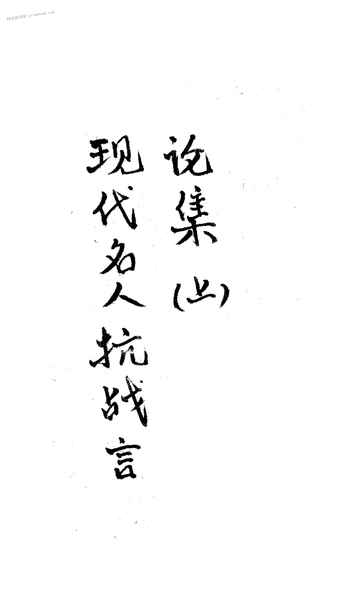 现代名人抗战言
论集(上)